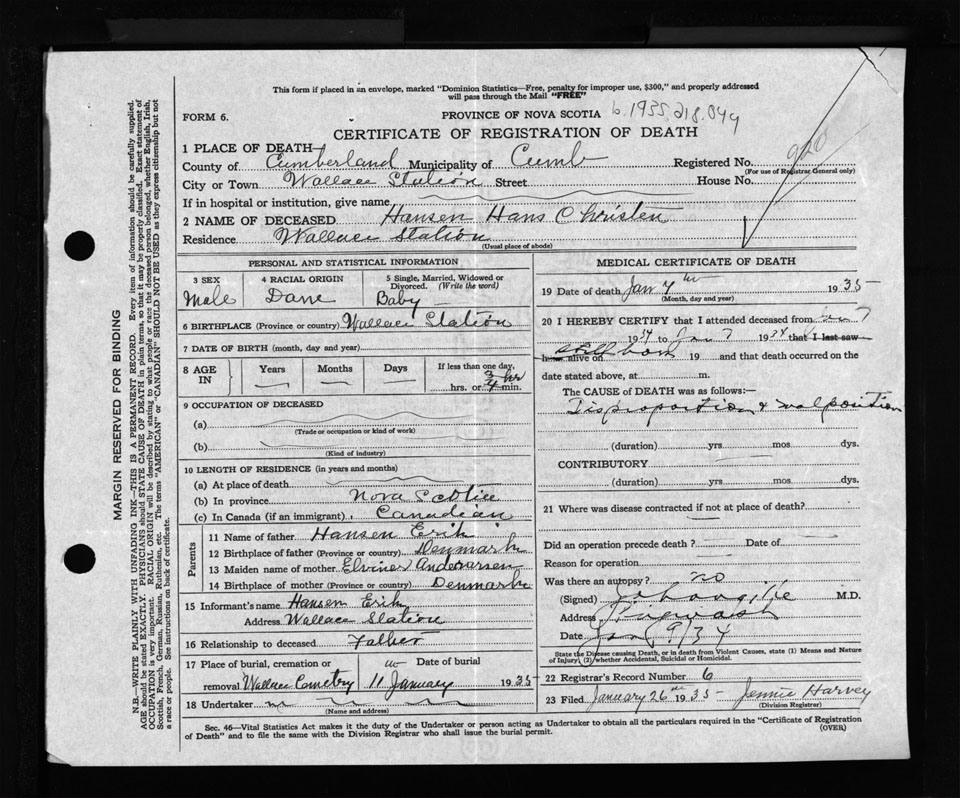 This form if placed in an envelope, marked "Dominion Statistics—Free, penalty for improper use, $300," and properly addressed
will pass through the Mail "FREE"
FORM 6.
PROVINCE OF NOVA SCOTIA
b. 1935.218.049
CERTIFICATE OF REGISTRATION OF DEATH
1 PLACE OF DEATH
County of Cumberland Municipality of Cumb Registered No.
(For use of Registrar General only)
City or Town Wallace Station Street House No.
If in hospital or institution, give name
2 NAME OF DECEASED Hansen Hans Christen
Residence Wallace Station
(Usual place of abode)
PERSONAL AND STATISTICAL INFORMATION
3 SEX Male
4 RACIAL ORIGIN Dane
5 Single, Married, Widowed or Divorced. (Write the word) Baby
6 BIRTHPLACE (Province or country) Wallace Station
7 DATE OF BIRTH (month, day and year)
8 AGE IN Years Months Days If less than one day, hrs. or min.
9 OCCUPATION OF DECEASED
(a)
(Trade or occupation or kind of work)
(b)
(Kind of industry)
10 LENGTH OF RESIDENCE (in years and months)
(a) At place of death
(b) In province Nova Scotia
(c) In Canada (if an immigrant) Canadian
Parents
11 Name of father Hansen Erik
12 Birthplace of father (Province or country) Denmark
13 Maiden name of mother Elviner Andersen
14 Birthplace of mother (Province or country) Denmark
15 Informant's name Hansen Erik
Address Wallace Station
16 Relationship to deceased Father
17 Place of burial, cremation or removal Wallace Cemetry Date of burial 11 January 1935
18 Undertaker
(Name and address)
MEDICAL CERTIFICATE OF DEATH
19 Date of death Jan 7th 1935
(Month, day and year)
20 I HEREBY CERTIFY that I attended deceased from Jan 7
1934 to Jan 7 1934 that I last saw
h alive on Stillborn 19 and that death occurred on
date stated above, at m.
The CAUSE OF DEATH was as follows:—
Disproportion & malposition
(duration) yrs mos dys.
CONTRIBUTORY
(duration) yrs. mos. dys.
21 Where was disease contracted if not at place of death?
Did an operation precede death? Date of
Reason for operation
Was there an autopsy? no
(Signed) M.D.
Address Pugwash
Date Jan 9/34
State the Disease causing Death, or in death from Violent Causes, state (1) Means and Nature
of Injury, (2) whether Accidental, Suicidal or Homicidal.
22 Registrar's Record Number 6
23 Filed January 26th 1935 Jennie Harvey
(Division Registrar)
Sec. 46—Vital Statistics Act makes it the duty of the Undertaker or person acting as Undertaker to obtain all the particulars required in the "Certificate of Registration
of Death" and to file the same with the Division Registrar who shall issue the burial permit.
(OVER)
MARGIN RESERVED FOR BINDING
N.B.—WRITE PLAINLY WITH UNFADING INK—THIS IS A PERMANENT RECORD. Every item of information should be carefully supplied.
AGE should be stated EXACTLY. PHYSICIANS should STATE CAUSE OF DEATH in plain terms, so that it may be properly classified. Exact statement of
OCCUPATION is very important. RACIAL ORIGIN will be described by stating to what people or race the deceased person belonged, whether English, Irish,
Scottish, French, German, Russian, Ruthenian, etc. The terms "AMERICAN" or "CANADIAN" SHOULD NOT BE USED as they express citizenship but not
a race or people. See instructions on back of certificate.